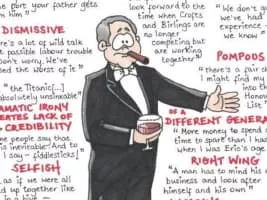 the port your father gets
him"
DISMISSIVE
a lot of wild talk
possible labour trouble
Don't worry. We've
the worst of it."
"the Titanic[...]
absolutely unsinkable"
DRAMATIC IRONY
CREATES LACK OF
CREDIBILITY
some people say that
inevitable. And to
I say - fiddlesticks!"
SELFISH
as if we were all
up together like
in a hive -
look forward to the
time when Crofts
and Birlings are
no longer
competing but
are working
together"
"We don't g
we've had
experience
we know"
POMPOUS
"there's a fair
I might find my
into the
Honou
List
OF A
DIFFERENT GENERA
"More money to spend
time to spare than I had
when I was Eric's age.
RIGHT WING
"A man has to mind his
business and look after
himself and his own"